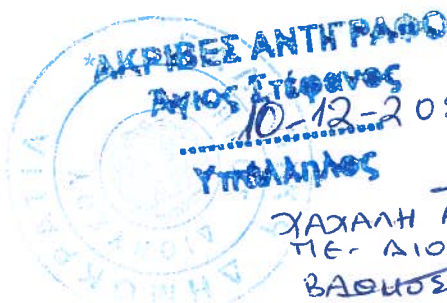 ΑΚΡΙΒΕΣ ΑΝΤΙΓΡΑΦΟ
Άγιος Στέφανος
10-12-20
Υπάλληλος
ΧΑΧΑΛΗ Α
ΠΕ. ΔΙΟ
ΒΑΘΜΟΣ